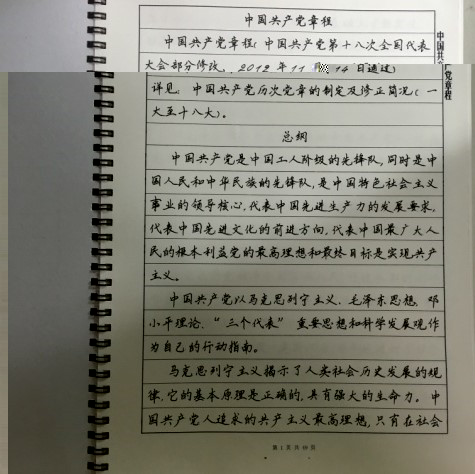 中国共产党章程
中国共产党章程: 中国共产党第十八次全国代表
大会部分修改, 2012年11月14日通过
详见: 中国共产党历次党章的制定及修正简况(一
大至十八大)。
总纲
中国共产党是中国工人阶级的先锋队,同时是中
国人民和中华民族的先锋队,是中国特色社会主义
事业的领导核心,代表中国先进生产力的发展要求,
代表中国先进文化的前进方向,代表中国最广大人
民的根本利益党的最高理想和最终目标是实现共产
主义。
中国共产党以马克思列宁主义、毛泽东思想、邓
小平理论、“三个代表”重要思想和科学发展观作
为自己的行动指南。
马克思列宁主义揭示了人类社会历史发展的规
律,它的基本原理是正确的,具有强大的生命力。中
国共产党人追求的共产主义最高理想,只有在社会
第1页共49页